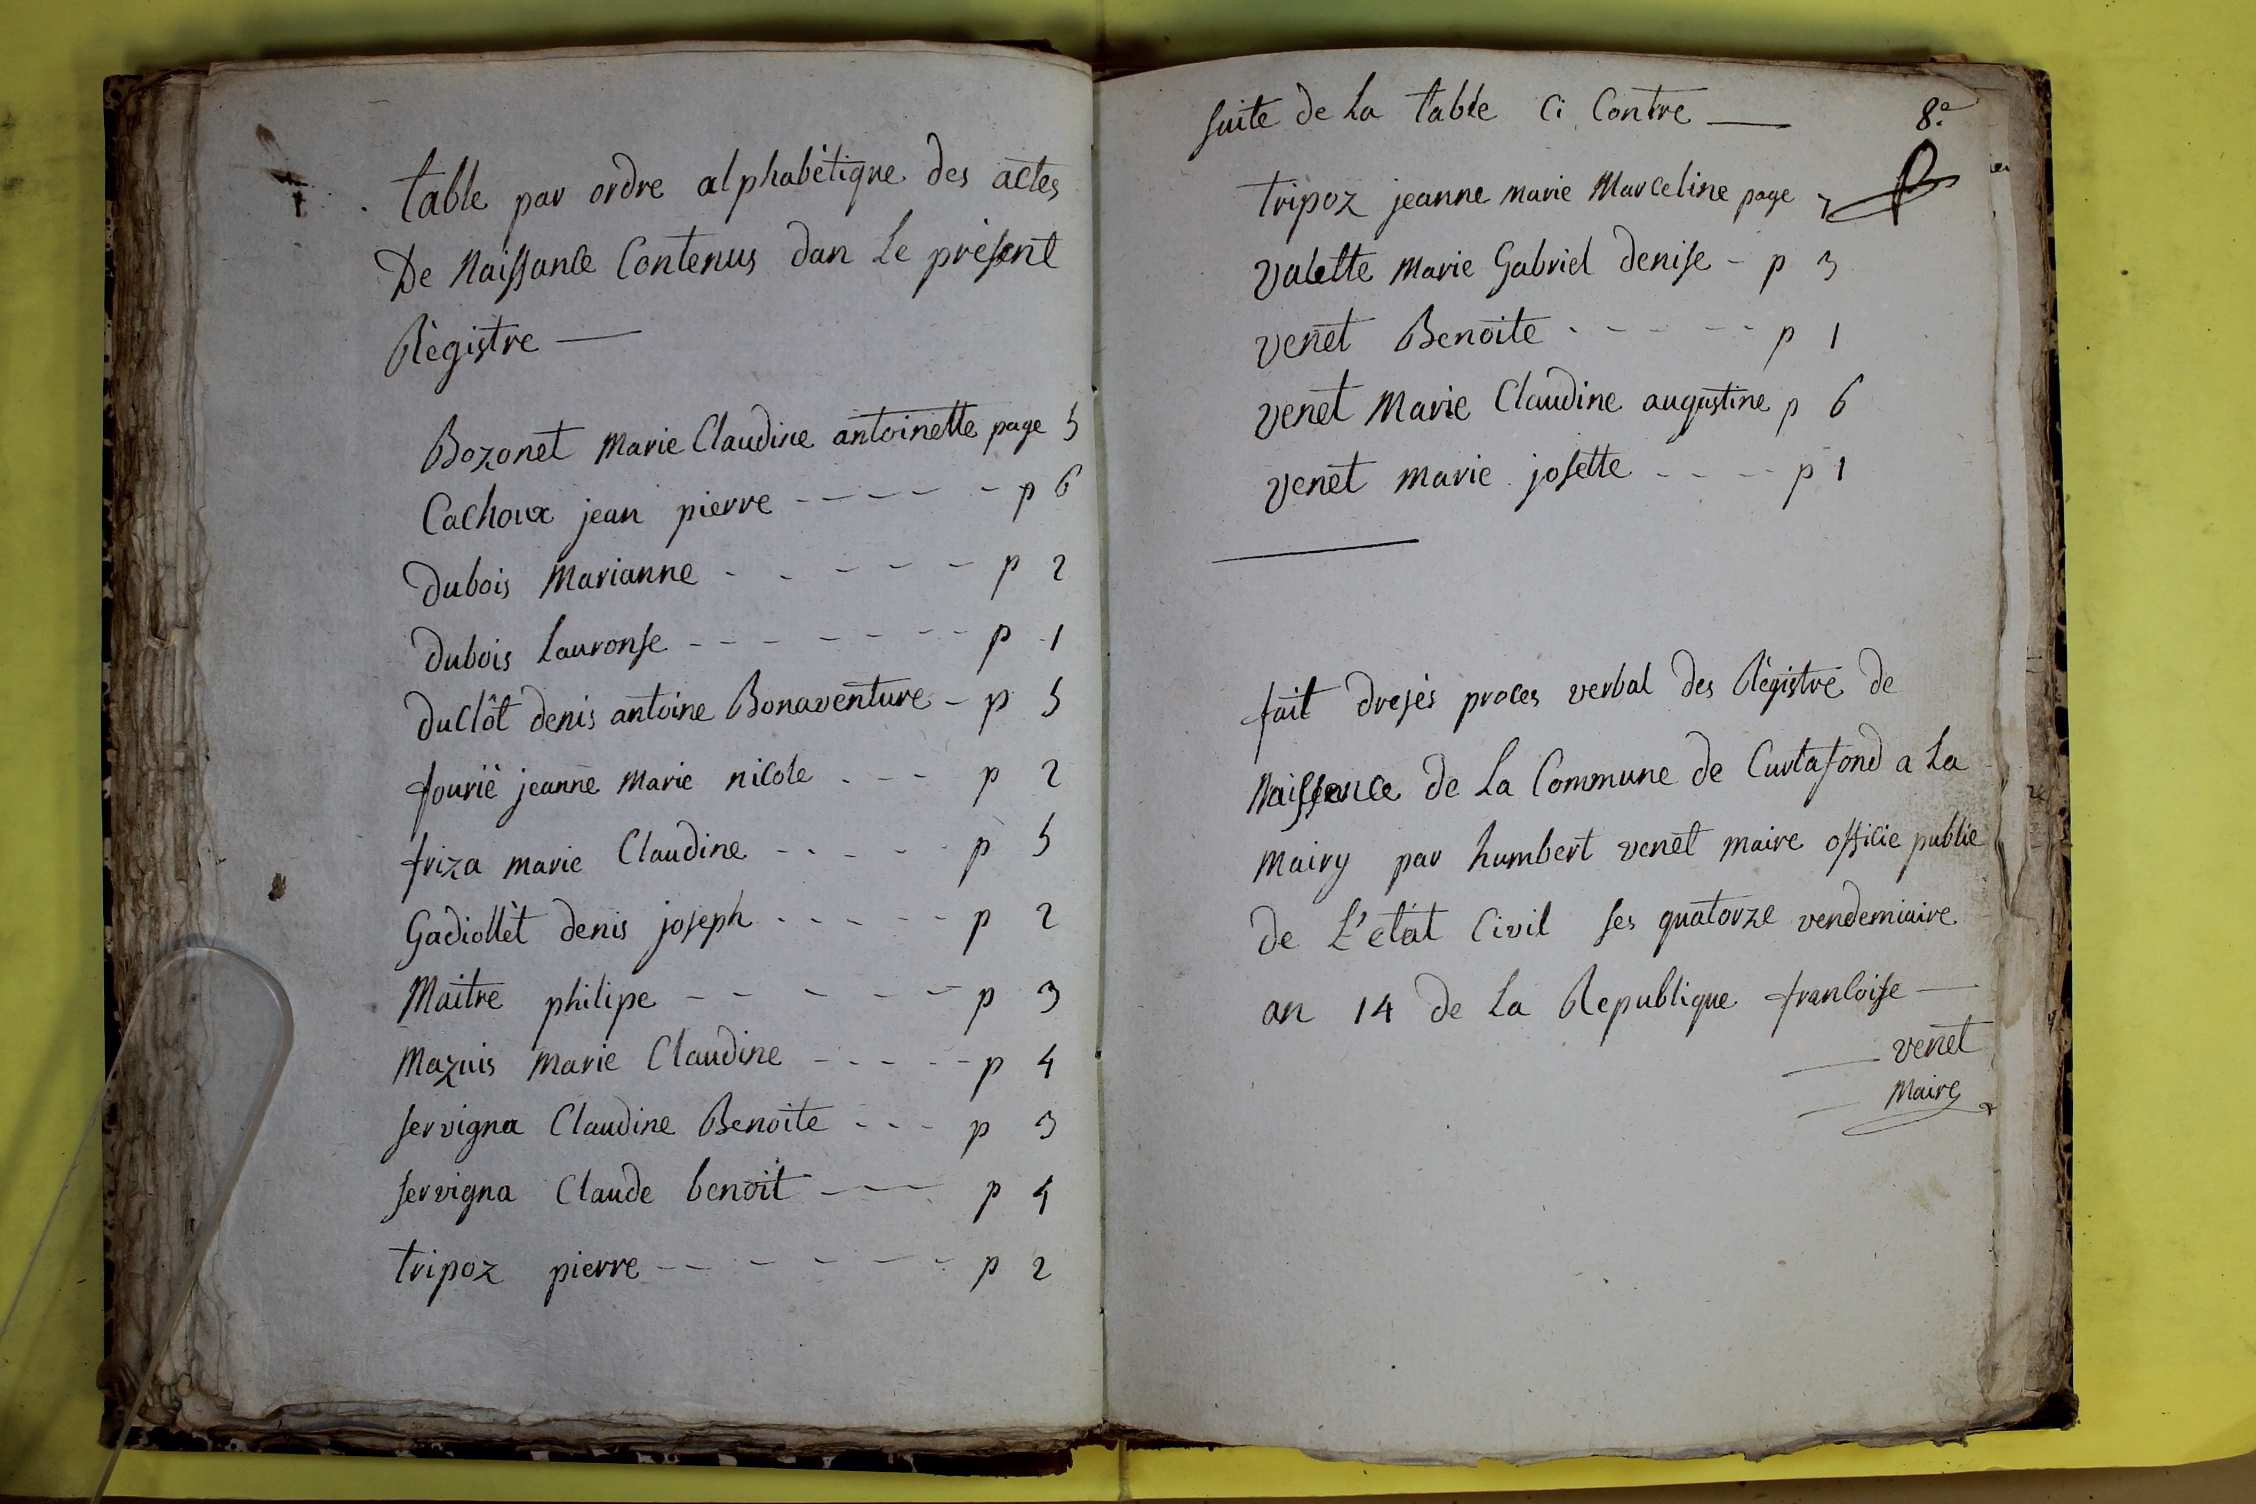 table par ordre alphabètique des actes
De Naissance Contenus dan Le prèsent
Règistre —
Bozonet Marie Claudine antoinette page 5
Cachoux jean pierre - - - - - p 6
dubois Marianne - - - - - - p 2
dubois Lauronse - - - - - - - p 1
duclôt denis antoine Bonaventure - p 5
fouriè jeanne Marie nicole - - - p 2
friza marie Claudine - - - - - p 5
Gadiollèt denis joseph - - - - - p 2
Maitre philipe - - - - - - p 3
Mazuis Marie Claudine - - - - - p 4
servigna Claudine Benoite - - - p 3
servigna Claude benoit - - - p 4
tripoz pierre - - - - - - - p 2
suite de La table Ci Contre —
8.e
tripoz jeanne marie Marceline page 7
valette Marie Gabriel denise - p 3
venet Benoite - - - - - - p 1
venet Marie Claudine augustine p 6
venet marie josette - - - - p 1
fait dresés proces verbal des Règistre de
Naissance de La Commune de Curtafond a La
Mairy par humbert venet maire officie publie
de L'etat Civil ses quatorze vendemiaire
an 14 de La Republique francoise —
venet
Maire